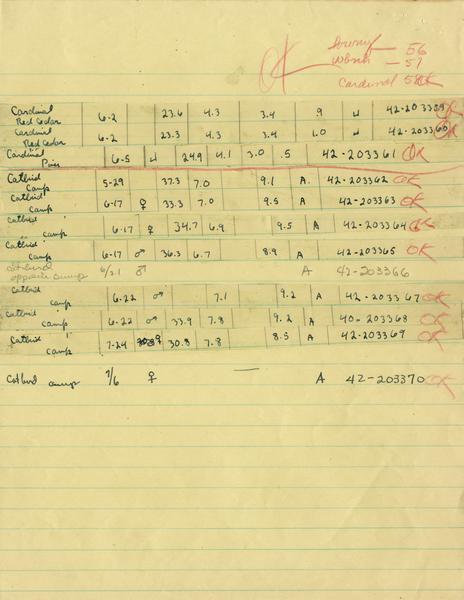 OK
Downy — 56
— 57
Cardinal 58 OK
Cardinal
Red Cedar 6-2 23.6 4.3 3.4 .9 u 42-203359 OK
Cardinal
Red Cedar 6-2 23.3 4.3 3.4 1.0 u 42-203360 OK
Cardinal
Pines 6-5 u 24.9 4.1 3.0 .5 42-203361 OK
Catbird
Camp 5-29 37.3 7.0 9.1 A. 42-203362 OK
Catbird
Camp 6-17 ♀ 33.3 7.0 9.5 A 42-203363 OK
Catbird
Camp 6-17 ♀ 34.7 6.9 9.5 A 42-203364 OK
Catbird
Camp 6-17 ♂ 36.3 6.7 8.9 A 42-203365 OK
Catbird
opposite camp 6/21 ♂ A 42-203366
Catbird
Camp 6-22 ♂ 7.1 9.2 A 42-203367 OK
Catbird
Camp 6-22 ♂ 33.9 7.8 9.2 A 40-203368 OK
Catbird
Camp 7-24 ♀ 30.8 7.8 8.5 A 42-203369 OK
Catbird camp 7/6 ♀ — A 42-203370 OK